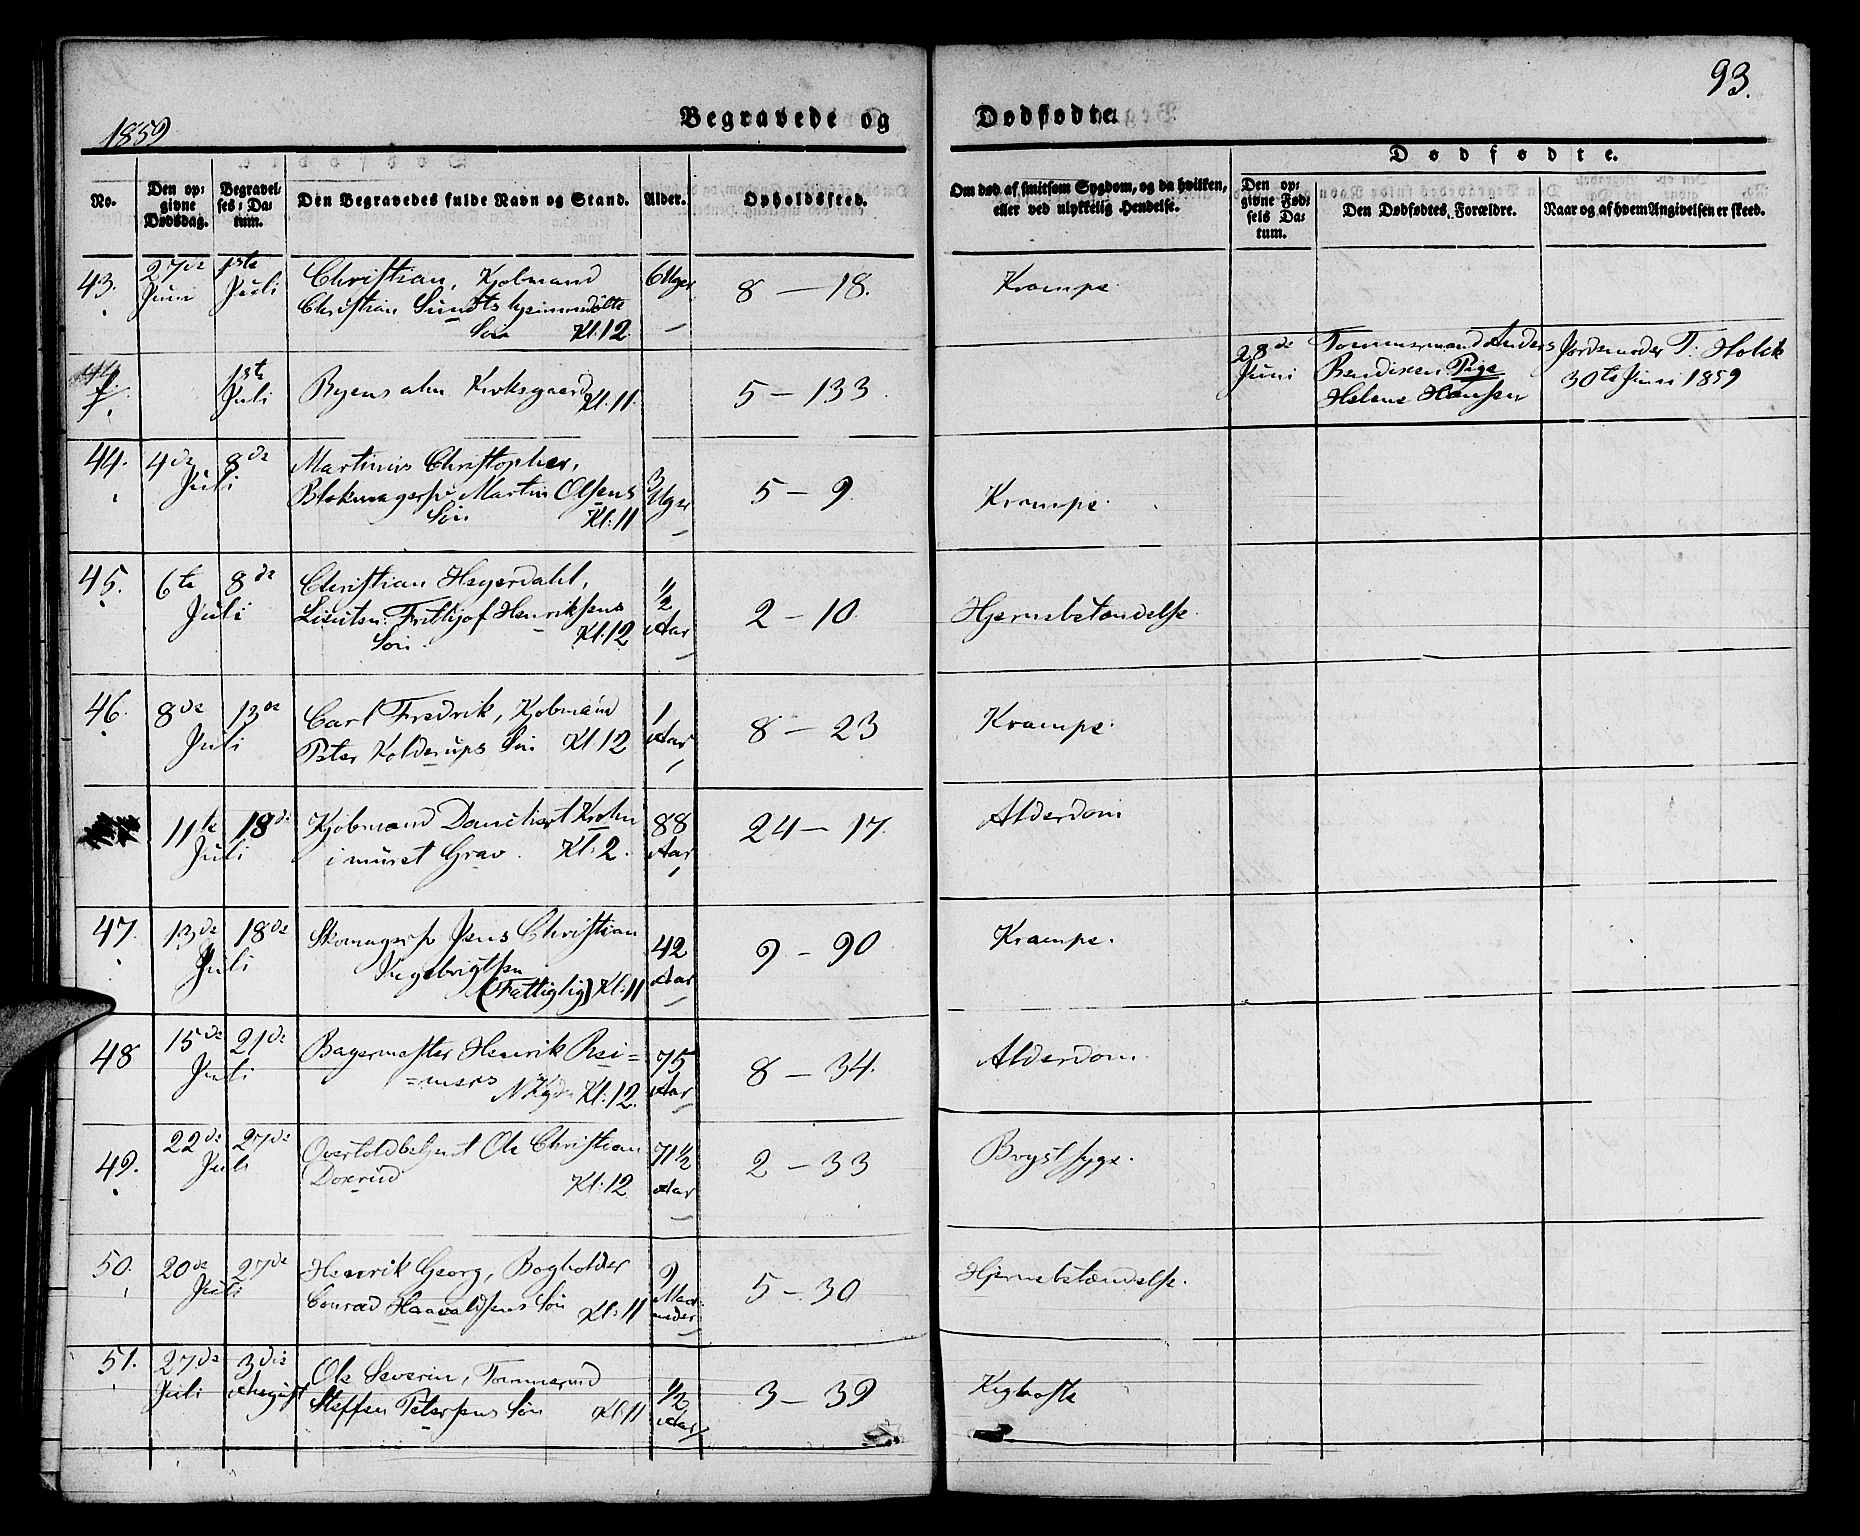 93.
1859
Begravede og Dødfødte.
No.
Den opgivne Dødsdag.
Begravelses-Datum.
Den Begravedes fulde Navn og Stand.
Alder.
Opholdssted.
Om død af smitsom Sygdom, og da hvilken, eller ved ulykkelig Hendelse.
Dødfødte.
Den opgivne Fødsels Datum.
Den Dødfødtes Forældre.
Naar og af hvem Angivelsen er skeed.
43. 27de Juni 1ste Juli Christian, Kjøbmand 6 Uger 8 – 18. Krampe
Christian Sundts hjemmedøbte
Søn Kl: 12
1ste Juli Byens alm Kirkegaard Kl. 11. 5 – 133. 28de Juni Tømmermand Anders Jordemoder T: Holck
Bendixen Pige 30te Juni 1859
Helene Hansen
44. 4de 8de Juli Martinus Christopher, 3 Uger 5 – 9. Krampe.
Blokmagersv. Martin Olsens
Søn Kl: 11
45. 6te 8de Juli Christian Heyerdahl, 1/2 Aar 2 – 10. Hjernebetændelse.
Lieuten: Frithjof Henriksens
Søn. Kl: 12
46. 8de 13de Juli Carl Fredrik, Kjøbmand 1 Aar 8 – 23 Krampe.
Peter Kolderups Søn Kl 12
11te 18de Juli Kjøbmand Danchert Krohn 88 Aar 24 – 17. Alderdom
i muret Grav. Kl: 2.
47. 13de 18de Juli Skomagersv Jens Christian 42 Aar 9 – 90 Krampe.
Ingebrigtsen
(Fattiglig) Kl: 11
48 15de 21de Juli Bagermester Henrik Rei= 75 Aar 8 – 34. Alderdom.
=mers Kl: 12.
49. 22de 27de Juli Overtoldbetjent Ole Christian 71 1/2 Aar 2 – 33 Brystsyge.
Doxrud Kl: 12
50. 20de 27de Juli Henrik Georg, Bogholder 9 Maaneder 5 – 30 Hjernebetændelse.
Conrad Haavaldsens Søn Kl: 11
51. 27de Juli 3die August Ole Severin, Tømmermd 1/2 Aar 3 – 39 Kighoste
Steffen Petersens Søn Kl: 11